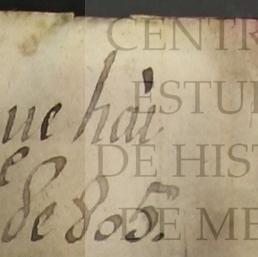 ue hai
e
de 805.
CENTR
ESTU
DE HIST
DE ME